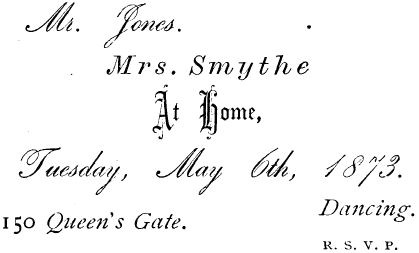 Mr. Jones.
Mrs. Smythe
At Home,
Tuesday, May 6th, 1873.
Dancing.
150 Queen's Gate.
R. S. V. P.